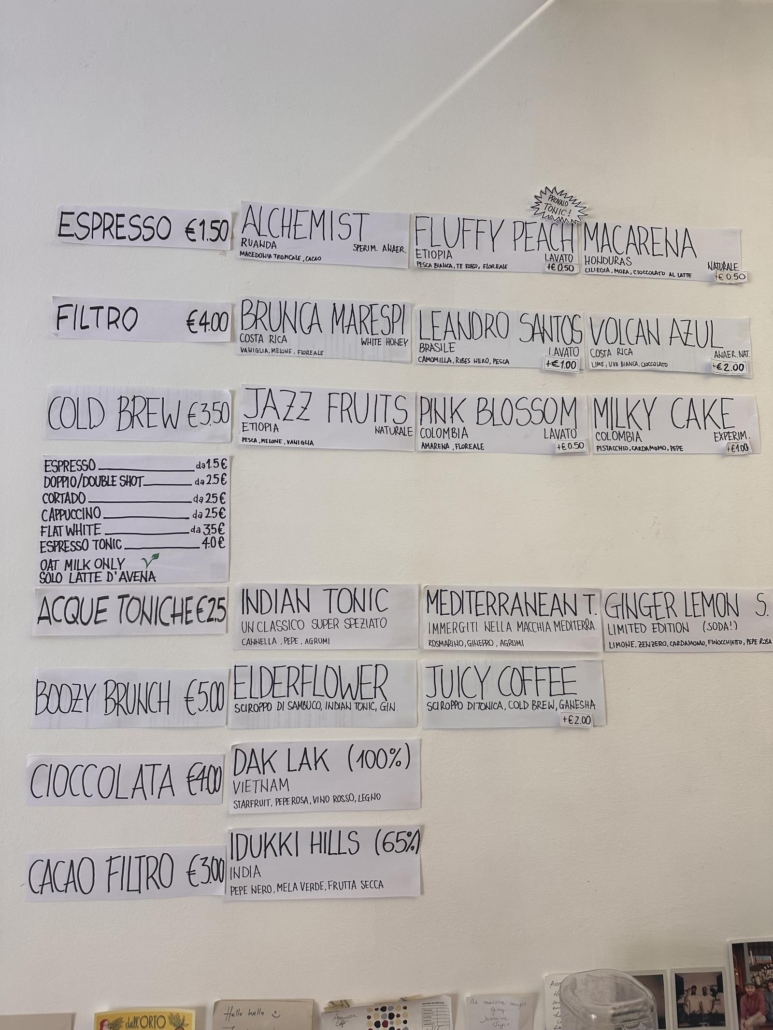 PROVALO
TONIC!
ESPRESSO €1.50
ALCHEMIST
RUANDA SPERIM. ANAER.
MACEDONIA TROPICALE, CACAO
FLUFFY PEACH
ETIOPIA LAVATO
PESCA BIANCA, TE NERO, FLOREALE +€0.50
MACARENA
HONDURAS NATURALE
CILIEGIA, MORA, CIOCCOLATO AL LATTE +€0.50
FILTRO €4.00
BRUNCA MARESPI
COSTA RICA WHITE HONEY
VANIGLIA, MELONE, FLOREALE
LEANDRO SANTOS
BRASILE LAVATO
CAMOMILLA, RIBES NERO, PESCA +€1.00
VOLCAN AZUL
COSTA RICA ANAER. NAT.
LIME, UVA BIANCA, CIOCCOLATO +€2.00
COLD BREW €3.50
JAZZ FRUITS
ETIOPIA NATURALE
PESCA, MELONE, VANIGLIA
PINK BLOSSOM
COLOMBIA LAVATO
AMARENA, FLOREALE +€0.50
MILKY CAKE
COLOMBIA EXPERIM.
PISTACCHIO, CARDAMOMO, PEPE +€1.00
ESPRESSO da 1.5€
DOPPIO/DOUBLE SHOT da 2.5€
CORTADO da 2.5€
CAPPUCCINO da 2.5€
FLAT WHITE da 3.5€
ESPRESSO TONIC 4.0€
OAT MILK ONLY
SOLO LATTE D'AVENA
ACQUE TONICHE €2.5
INDIAN TONIC
UN CLASSICO SUPER SPEZIATO
CANNELLA, PEPE, AGRUMI
MEDITERRANEAN T.
IMMERGITI NELLA MACCHIA MEDITERRA.
ROSMARINO, GINEPRO, AGRUMI
GINGER LEMON S.
LIMITED EDITION (SODA!)
LIMONE, ZENZERO, CARDAMOMO, FINOCCHIETO, PEPE ROSA
BOOZY BRUNCH €5.00
ELDERFLOWER
SCIROPPO DI SAMBUCO, INDIAN TONIC, GIN
JUICY COFFEE
SCIROPPO DI TONICA, COLD BREW, GANESHA
+€2.00
CIOCCOLATA €4.00
DAK LAK (100%)
VIETNAM
STARFRUIT, PEPE ROSA, VINO ROSSO, LEGNO
CACAO FILTRO €3.00
IDUKKI HILLS (65%)
INDIA
PEPE NERO, MELA VERDE, FRUTTA SECCA
dell'ORTO
Hello hello